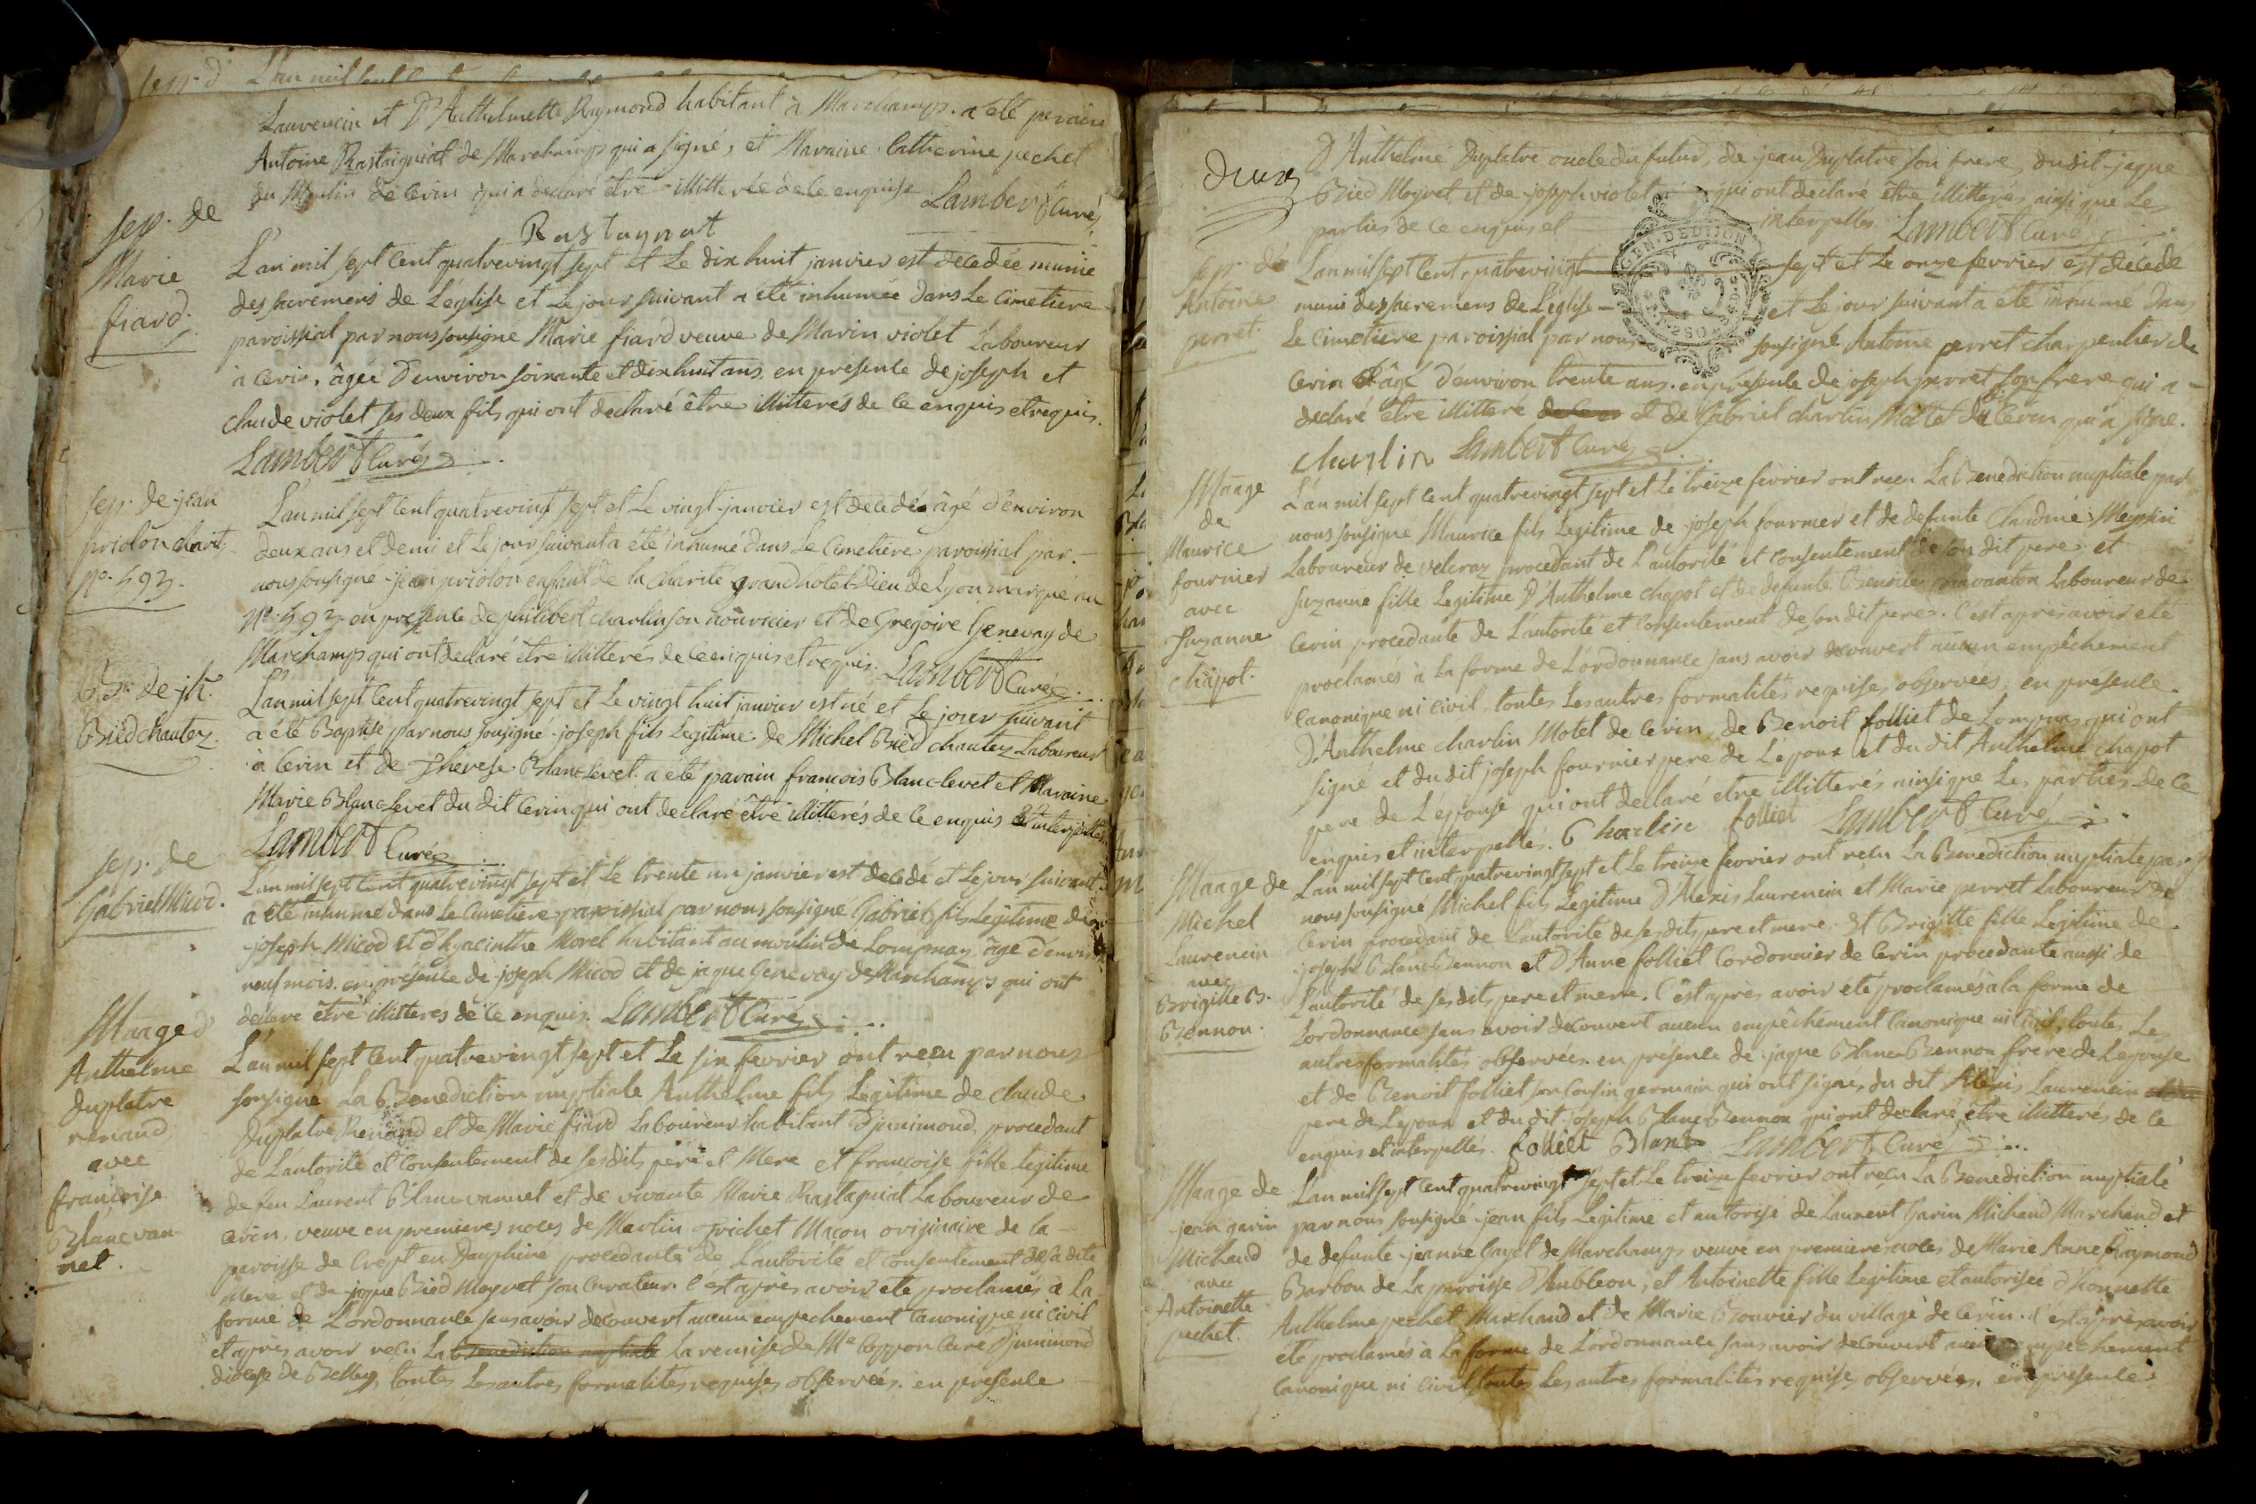 Laurencin et D'Anthelmette Raymond habitant à Marchamps. a été parain
Antoine Rastaigniat de Marchamps qui a signé, et Maraine Catherine pechet
du Moulin de Cerin qui a declaré être illitterée de ce enquise Lambert Curé
Rastagnat
sep. de
Marie
fiard.
L'an mil sept Cent quatrevingt sept et Le dix huit janvier est decedée munie
des sacremens de L'eglise et Le jour suivant a été inhumée dans Le Cimetiere
paroissial par nous soussigné Marie fiard veuve de Marin violet Laboureur
à Cerin, âgée D'environ soixante et dix huit ans, en présence de joseph et
Claude violet ses deux fils qui ont declaré être illitterés de ce enquis et requis.
Lambert Curé
sep. de jean
priolon charit.
No. 593.
L'an mil sept Cent quatrevingt sept et Le vingt janvier est decedé âgé d'environ
deux ans et demi et Le jour suivant a été inhumé dans Le Cimetiere paroissial par
nous soussigné jean priolon enfant de la Charité grand hotel-Dieu de Lyon marqué au
No. 593 en présence de philibert charlin son nourricier et de Gregoire Genevay de
Marchamps qui ont declaré être illitterés de ce enquis et requis. Lambert Curé
B. de jh.
Bied chantez.
L'an mil sept Cent quatrevingt sept et Le vingt huit janvier est né et Le jour suivant
a été Baptisé par nous soussigné joseph fils Legitime de Michel Bied chantez Laboureur
à Cerin et de Therese Blanc-levet a été parain francois Blanc-levet et Maraine
Marie Blanc-levet du dit Cerin qui ont declaré être illitterés de ce enquis et interpellés
Lambert Curé
sep. de
Gabriel Micod.
L'an mil sept Cent quatrevingt sept et Le trente un janvier est decedé et Le jour suivant
a été inhumé dans Le Cimetiere paroissial par nous soussigné Gabriel fils Legitime de
joseph Micod et d'hyacinthe Morel habitant au moulin de Lompnaz âgé d'environ
neuf mois. en présence de joseph Micod et de jaque Genevay de Marchamps qui ont
declaré être illitterés de ce enquis. Lambert Curé
Maage d'
Anthelme
duplatre
renaud
avec
francoise
Blanc van
net.
L'an mil sept Cent quatrevingt sept et Le six fevrier ont recu par nous
soussigné La Benediction nuptiale Anthelme fils Legitime de claude
Duplatre Renaud et de Marie fiard Laboureur habitant D'junimond, procedant
de L'autorité et Consentement de ses dits pere et Mere et francoise fille Legitime
de feu Laurent Blanc-vannet et de vivante Marie Rastagniat Laboureur de
Cerin, veuve en premieres noces de Martin Grichet Maçon originaire de la
paroisse de Crept en Dauphiné procedante de L'autorité et Consentement de sa dite
Mere et de jaque Bied Moyret son Curateur. C'est apres avoir été proclamés à La
forme de L'ordonnance sans avoir decouvert aucun empechement Canonique ni Civil
et après avoir recu La Benediction nuptiale La remise de Mr Coppon Curé D'junimond
diocese de Belley, toutes Les autres formalités requises observées. en présence
deux
D'Anthelme Duplatre oncle du futur, de jean Duplatre son frere, du dit jaque
Bied Moyret et de joseph violet qui ont declaré être illitterés ainsi que Les
parties de ce enquis et interpellés Lambert Curé
sep. de
Antoine
perret.
L'an mil sept Cent quatrevingt sept et Le onze fevrier est decedé
muni des sacremens de L'eglise et Le jour suivant a été inhumé dans
Le Cimetiere paroissial par nous soussigné Antoine perret charpentier de
Cerin âgé d'environ trente ans. en présence de joseph perret son frere qui a
declaré être illitteré de Ce et de Gabriel charlin Motet de Cerin qui a signé.
charlin Lambert Curé
Maage
de
Maurice
fournier
avec
Suzanne
Chapot.
L'an mil sept Cent quatrevingt sept et Le treize fevrier ont recu La Benediction nuptiale par
nous soussigné Maurice fils Legitime de joseph fournier et de defunte Claudine
Laboureur de veleraz procedant de L'autorité et Consentement de son dit pere et
Suzanne fille Legitime D'Anthelme chapot et de defunte Laboureur de
Cerin procedante de L'autorité et Consentement de son dit pere. C'est apres avoir été
proclamés à La forme de L'ordonnance sans avoir decouvert aucun empêchement
Canonique ni Civil, toutes Les autres formalités requises observées, en présence
D'Anthelme charlin Motet de Cerin, de Benoit folliet de Lompnas qui ont
signé et du dit joseph fournier pere de Lepoux et du dit Anthelme chapot
pere de Lepouse qui ont declaré être illitterés ainsi que Les parties de Ce
enquis et interpellés. Charlin folliet Lambert Curé
Maage de
Michel
Laurencin
avec
Brigitte B.
Bennon.
L'an mil sept Cent quatrevingt sept et Le treize fevrier ont recu La Benediction nuptiale par
nous soussigné Michel fils Legitime d'Alexis Laurencin et Marie perret Laboureur de
Cerin procedant de L'autorité de ses dits pere et mere. Et Brigitte fille Legitime de
joseph Blanc-Bennon et D'Anne folliet Cordonnier de Cerin procedante aussi de
L'autorité de ses dits pere et mere. C'est apres avoir été proclamés à la forme de
Lordonnance sans avoir decouvert aucun empêchement Canonique ni Civil, toutes Les
autres formalités observées. en présence de jaque Blanc-Bennon frere de Lepouse
et de Benoit folliet son Cousin germain qui ont signés, du dit Alexis Laurencin
pere de Lepoux et du dit joseph Blanc-Bennon qui ont declaré être illitterés de ce
enquis et interpellés. folliet Blanc Lambert Curé
Maage de
jean garin
Michaud
avec
Antoinette
pechet.
L'an mil sept Cent quatrevingt sept et Le treize fevrier ont recu La Benediction nuptiale
par nous soussigné jean fils Legitime et autorisé de Laurent Garin Michaud Marchand et
de defunte jeanne Cayel de Marchamps veuve en premieres noces de Marie Anne Raymond
Barbou de La paroisse D'Ambleon, et Antoinette fille Legitime et autorisée d'honnette
Anthelme pechet Marchand et de Marie Bouvier du village de Cerin. C'est après avoir
été proclamés à La forme de L'ordonnance sans avoir decouvert aucun empechement
Canonique ni Civil toutes Les autres formalités requises observées. en présence